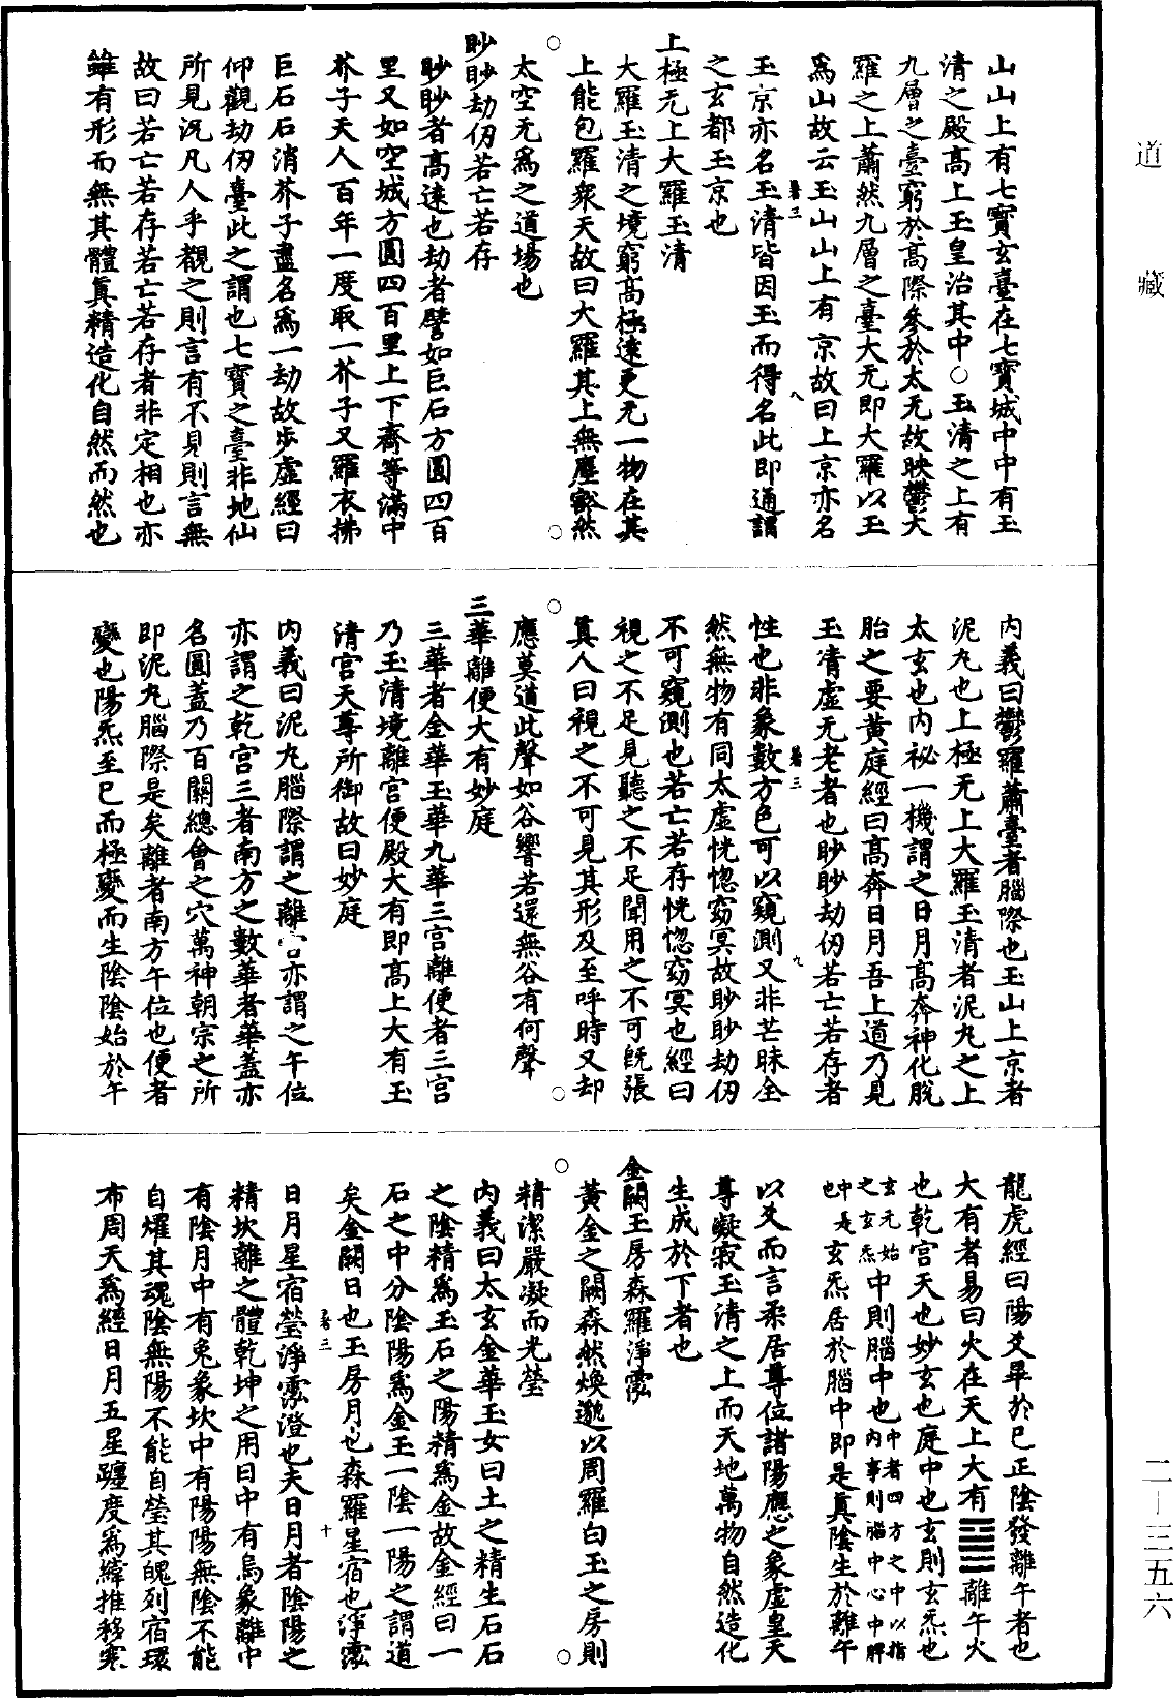 道藏
山山上有七寶玄臺在七寶城中中有玉
清之殿高上玉皇治其中○玉清之上有
九層之臺窮於高際參於太无故映鬱大
羅之上蕭然九層之臺大无即大羅以玉
為山故云玉山山上有京故曰上京亦名
玉京亦名玉清皆因玉而得名此即通謂
之玄都玉京也
上極无上大羅玉清
大羅玉清之境窮高極遠更无一物在其
上能包羅眾天故曰大羅其上無塵豁然
太空无為之道場也
眇眇劫仞若亡若存
眇眇者高遠也劫者譬如巨石方圓四百
里又如空城方圓四百里上下齊等滿中
芥子天人百年一度取一芥子又羅衣拂
巨石石消芥子盡名為一劫故步虛經曰
仰觀劫仞臺此之謂也七寶之臺非地仙
所見況凡人乎覩之則言有不見則言無
故曰若亡若存若亡若存者非定相也亦
雖有形而無其體真精造化自然而然也
內義曰鬱羅蕭臺者腦際也玉山上京者
泥丸也上極无上大羅玉清者泥丸之上
太玄也內祕一機謂之日月高奔神化脫
胎之要黃庭經曰高奔日月吾上道乃見
玉清虛无老者也眇眇劫仞若亡若存者
性也非象數方色可以窺測又非芒昧全
然無物有同太虛恍惚窈冥故眇眇劫仞
不可窺測也若亡若存恍惚窈冥也經曰
視之不足見聽之不足聞用之不可既張
真人曰視之不可見其形及至呼時又却
應莫道此聲如谷響若還無谷有何聲
三華離便大有妙庭
三華者金華玉華九華三宮離便者三宮
乃玉清境離宮便殿大有即高上大有玉
清宮天尊所御故曰妙庭
內義曰泥丸腦際謂之離宮亦謂之午位
亦謂之乾宮三者南方之數華者華蓋亦
名圓蓋乃百關總會之穴萬神朝宗之所
即泥丸腦際是矣離者南方午位也便者
變也陽炁至巳而極變而生陰陰始於午
龍虎經曰陽爻畢於巳正陰發離午者也
大有者易曰火在天上大有䷍離午火
也乾宮天也妙玄也庭中也玄則玄炁也
玄元始之玄炁中則腦中也中者四方之中以指內事則腦中心中脾中是也玄炁居於腦中即是真陰生於離午
以爻而言柔居尊位諸陽應之象虛皇天
尊凝寂玉清之上而天地萬物自然造化
生成於下者也
金闕玉房森羅淨泓
黃金之闕森然煥邈以周羅白玉之房則
精潔嚴凝而光瑩
內義曰太玄金華玉女曰土之精生石石
之陰精為玉石之陽精為金故金經曰一
石之中分陰陽為金玉一陰一陽之謂道
矣金闕日也玉房月也森羅星宿也淨泓
日月星宿瑩淨泓澄也夫日月者陰陽之
精坎離之體乾坤之用日中有烏象離中
有陰月中有兔象坎中有陽陽無陰不能
自燿其魂陰無陽不能自瑩其魄列宿環
布周天為經日月五星躔度為緯推移寒
二－三五六